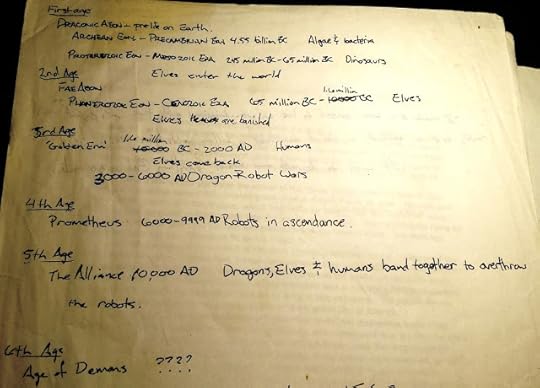 First age
DRACONIC AEON - prelife on Earth.
ARCHEAN EON - PRECAMBRIAN ERA 4.55 billion BC Algae & bacteria
PROTEROZOIC EON - MESOZOIC ERA 245 million BC - 65 million BC Dinosaurs
2nd Age Elves enter the world
FAE AEON
1.60 million
PHANEROZOIC EON - CENOZOIC ERA 65 million BC - BC Elves
Elves are banished
3rd Age
1.60 million
"Golden Era" BC - 2000 AD Humans
Elves come back
3000 - 6000 AD Dragon Robot Wars
4th Age
Prometheus 6000 - 9999 AD Robots in ascendance.
5th Age
The Alliance 10,000 AD Dragons, Elves & humans band together to overthrow
the robots.
6th Age
Age of Demons ????